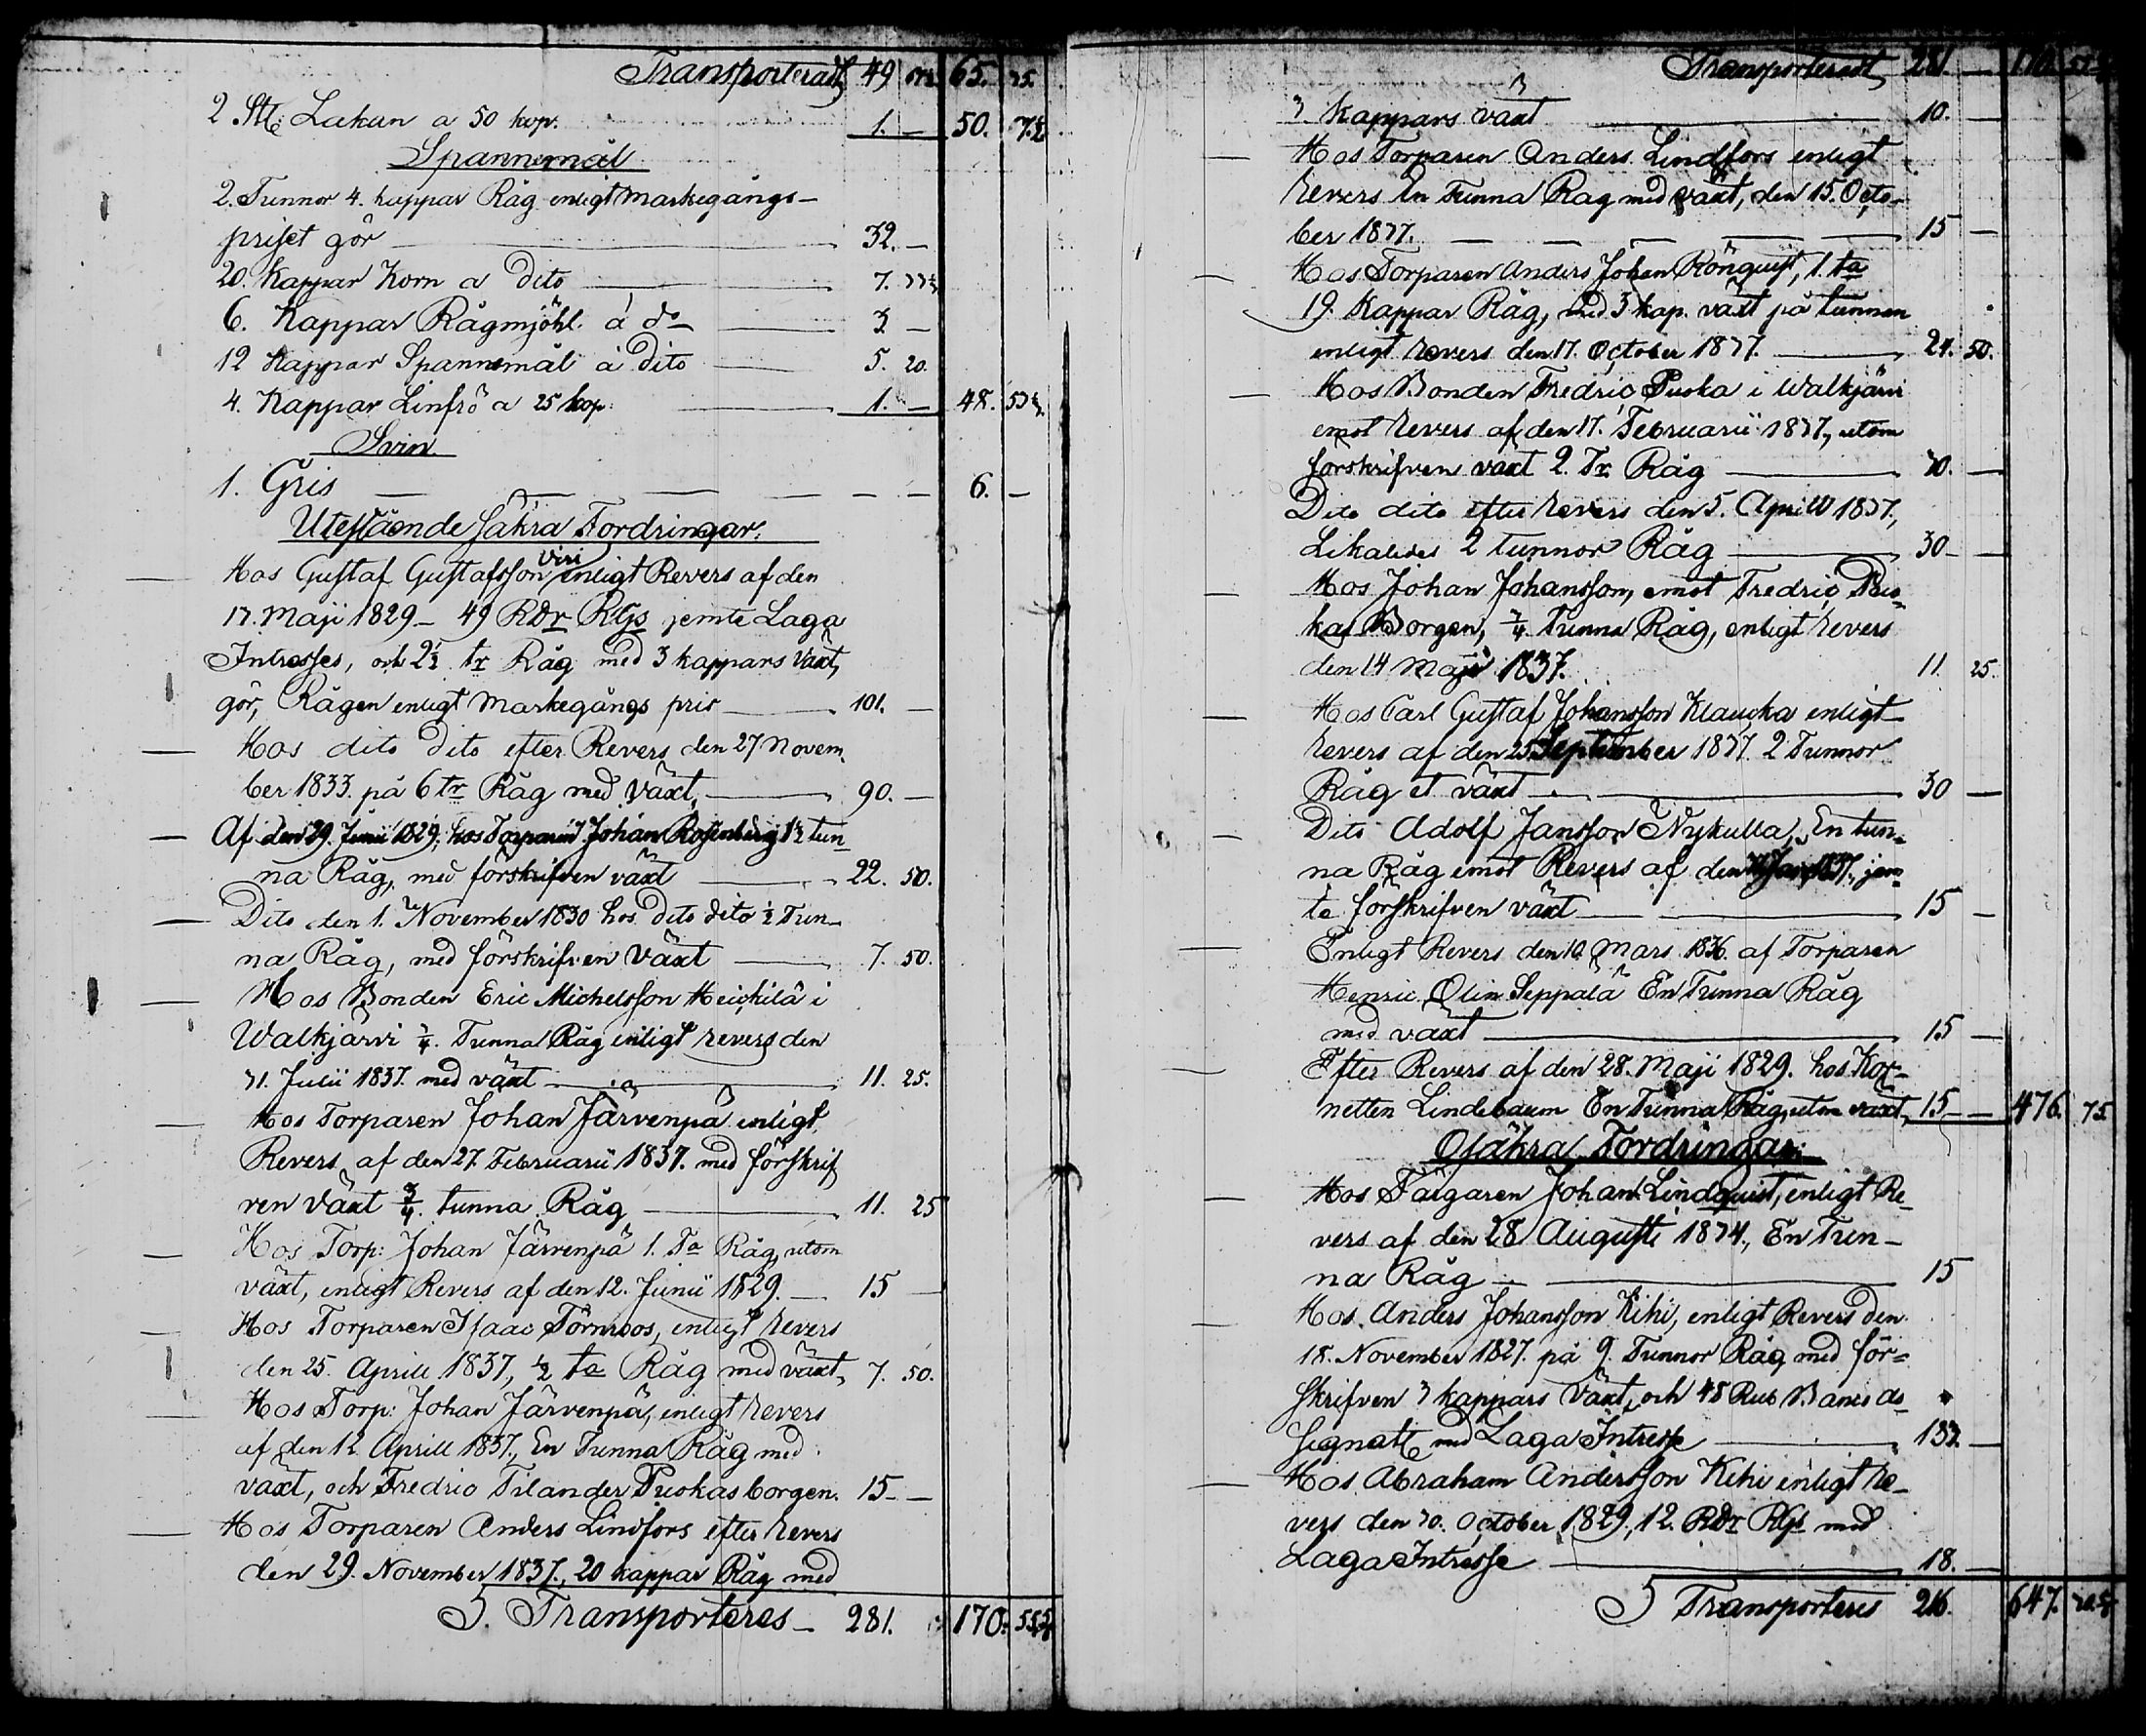 Transporteradt 49 65. 25.
2 St: Lakan a 50 kop. 1. — 50. 7½
Spannemål
2. Tunnor 4. kappar Råg enligt Markegångs-
priset gör 32. —
20. Kappar Korn a Dito 7. 33½
6. Kappar Rågmjöhl á do 3 —
12 Kappar Spannemål á dito 5. 20.
4. Kappar Linfrö a 25 kop. 1. — 48. 53½
Svin
1. Gris — — — — — — 6. —
Utestående säkra Fordringar.
Hos Gustaf Gustafsson Viri enligt Revers af den
17. Maji 1829 — 49 RDr RGs jemte Laga
Intresses, och 2½ tr Råg med 3 kappars Växt,
gör, Rågen enligt Markegångs pris 101. —
Hos dito dito efter Revers den 27 Novem-
ber 1833. på 6 tr Råg med Växt, 90. —
Af den 29. Junii 1829, hos Torparen Johan Rosenberg 1½ tun-
na Råg, med förskrifven växt 22. 50.
Dito den 1. November 1830 hos dito dito ½ Tun-
na Råg, med förskrifven Växt 7. 50.
Hos Bonden Eric Michelsson Heickilä i
Walkjärvi ¾. Tunna Råg enligt revers den
31. Julii 1837. med växt 11. 25.
Hos Torparen Johan Järvenpä enligt
Revers af den 27. Februarii 1837. med förskrif
ven Växt ¾. tunna Råg 11. 25
Hos Torp: Johan Järvenpä 1. Ta Råg, utom
växt, enligt Revers af den 12. Junii 1829. — 15 —
Hos Torparen Isaac Törnroos, enligt revers
den 25. Aprill 1837, ½ ta Råg med växt, 7. 50.
Hos Torp: Johan Järvenpä, enligt revers
af den 12 Aprill 1837, En Tunna Råg med
växt, och Fredric Tilander Puskas borgen. 15 — —
Hos Torparen Anders Lindfors efter revers
den 29. November 1837., 20 kappar Råg med
Transporteres — 281. 170. 53¾
Transporteradt 281 — 170. 53¾
3. Kappars växt 10. —
Hos Torparen Anders Lindfors enligt
revers En Tunna Råg med växt, den 15. Octo-
ber 1837. — — — — 15 —
Hos Torparen Anders Johan Rönquist, 1. ta
19. Kappar Råg, med 3 kap. växt på tunnan
enligt revers den 17. October 1837. 24. 50.
Hos Bonden Fredric Puska i Walkjärvi
emot revers af den 17. Februarii 1837, utom
förskrifven växt 2. Tr Råg 30. —
Dito dito efter revers den 5. Aprill 1837,
Likaledes 2 tunnor Råg 30 — —
Hos Johan Johansson, emot Fredric Pus-
kas Borgen, ¾. Tunna Råg, enligt revers
den 14 Maji 1837. 11. 25.
Hos Carl Gustaf Johansson Klaucka enligt
revers af den 25. September 1837. 2 Tunnor
Råg et växt 30 —
Dito Adolf Jansson Nykulla, En tun-
na Råg emot Revers af den 1837., jem-
te förskrifven växt 15 —
Enligt Revers den 10. Mars 1836. af Torparen
Henric Olin Seppälä En Tunna Råg
med växt 15 —
Efter Revers af den 28. Maji 1829. hos Kor-
netten Lindebaum En Tunna Råg, utom växt, 15 — 476. 75.
Osäkra Fordringar.
Hos Färgaren Johan Lindquist, enligt Re-
vers af den 28 Augusti 1834., En Tun-
na Råg 15
Hos Anders Johansson Kihi, enligt Revers den
18. November 1827. på 9. Tunnor Råg med för-
skrifven 3 kappars Växt, och 48 Rub Banco As-
signatt med Laga Intresse 183. —
Hos Abraham Andersson Kihi enligt re-
vers den 30. October 1829., 12. RDr RGs med
Laga Intresse 18. —
Transporteres 216. 647.